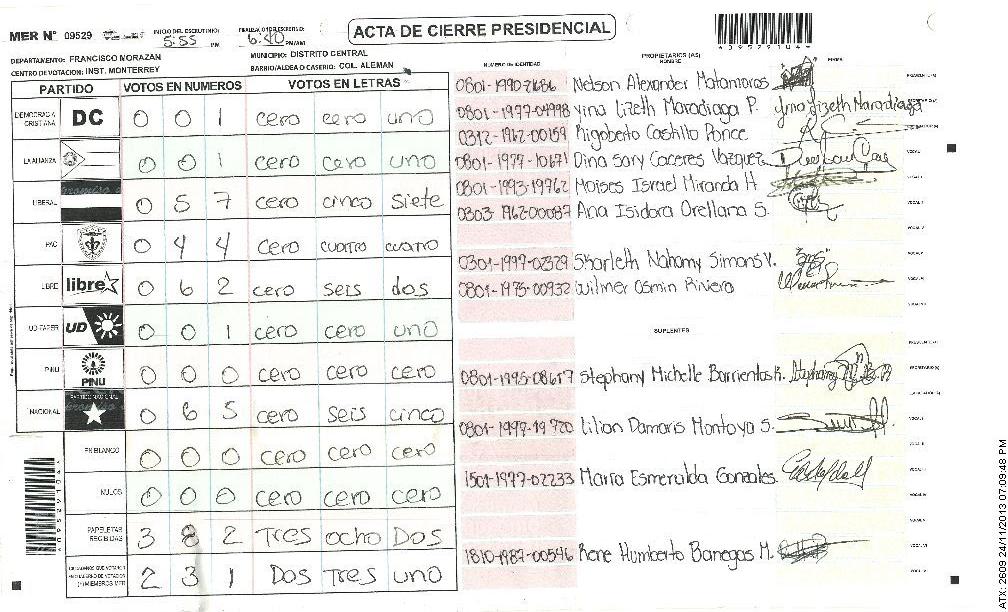 ACTA DE CIERRE PRESIDENCIAL
MER N° 09529
INICIO DEL ESCRUTINIO: 5:55 PM
6:40 PM/AM
DEPARTAMENTO: FRANCISCO MORAZAN
MUNICIPIO: DISTRITO CENTRAL
CENTRO DE VOTACION: INST. MONTERREY
BARRIO/ALDEA O CASERIO: COL. ALEMAN
PARTIDO VOTOS EN NUMEROS VOTOS EN LETRAS
DEMOCRACIA CRISTIANA DC 0 0 1 cero cero uno
LA ALIANZA 0 0 1 cero cero uno
LIBERAL 0 5 7 cero cinco siete
PAC 0 4 4 cero cuatro cuatro
LIBRE libre 0 6 2 cero seis dos
UD-FAPER UD 0 0 1 cero cero uno
PINU PINU 0 0 0 cero cero cero
NACIONAL PARTIDO NACIONAL 0 6 5 cero seis cinco
EN BLANCO 0 0 0 cero cero cero
NULOS 0 0 0 cero cero cero
PAPELETAS RECIBIDAS 3 8 2 Tres ocho Dos
CIUDADANOS QUE VOTARON EN CUADERNO DE VOTACION (+) MIEMBROS MER 2 3 1 Dos Tres uno
NUMERO DE IDENTIDAD PROPIETARIOS (AS) NOMBRE FIRMA
Nelson Alexander Matamoros
0801-1977-04998 Yina Lizeth Maradiaga P. Yina Lizeth Maradiaga
0312-1962-00159 Rigoberto Castillo Ponce
0801-1977-10671 Dina Sary Caceres Vazquez
0801-1993-19762 Moises Israel Miranda H
0303-1962-00087 Ana Isidora Orellana S.
0301-1997-02329 Skarleth Nahomy Simons V.
0801-1975-00932 Wilmer Osmin Rivera
SUPLENTES
Stephany Michelle Barrientos R.
0801-1997-19720 Lilian Damaris Montoya S.
1501-1977-02233 Maria Esmeralda Gonzales
1810-1987-00546 Rene Humberto Banegas M.
ATX: 2609 24/11/2013 07:09:48 PM